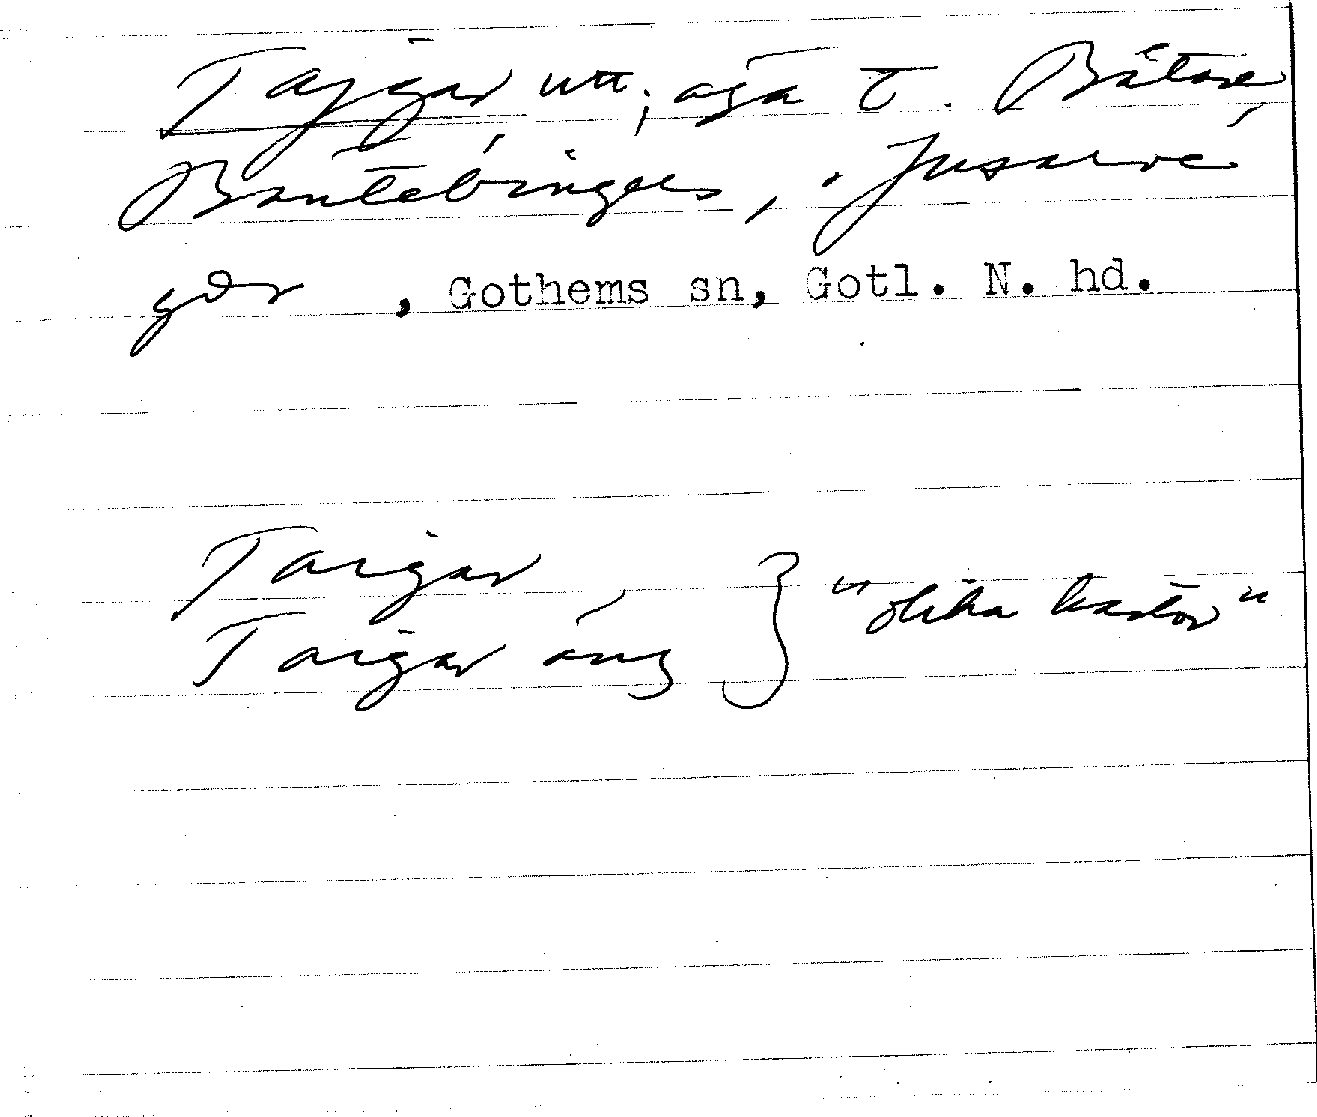 Tajgar utt., äga t. Båtare,
Bantebingels, Jusarve
går, Gothems sn, Gotl. N. hd.
Taigar
Taigar äng } "olika kartor"